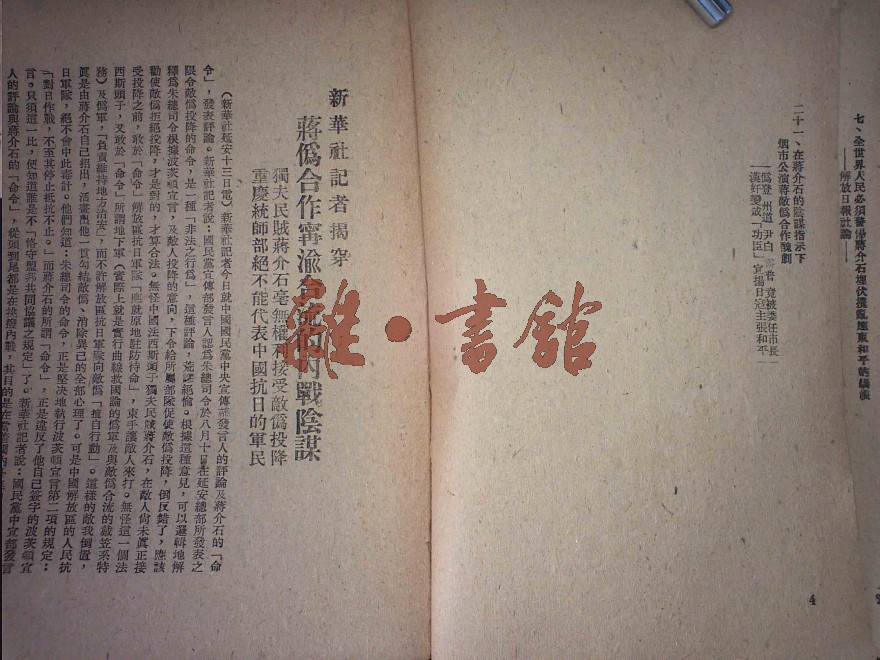 七、全世界人民必須警惕蔣介石埋伏擾亂遠東和平的禍根
——解放日報社論——
二十一、在蔣介石的陰謀指示下
烟市公演蔣敵僞合作醜劇
僞登州道尹白 竟被委任市長
漢奸變成「功臣」宣揚日寇主張和平
4
新華社記者揭穿
蔣僞合作審渝合流的內戰陰謀
獨夫民賊蔣介石毫無權利接受敵僞投降
重慶統帥部絕不能代表中國抗日的軍民
（新華社延安十三日電）新華社記者今日就中國國民黨中央宣傳部發言人的評論及蔣介石的「命
令」，發表評論。新華社記者說：國民黨宣傳部發言人認爲朱總司令於八月十日在延安總部所發表之
限令敵僞投降的命令，是一種「非法之行爲」，這種評論，荒謬絕倫。根據這種意見，可以邏輯地解
釋爲朱總司令根據波茨頓宣言，及敵人投降的意向，下令給所屬部隊促使敵僞投降，倒反錯了，應該
勸使敵僞拒絕投降，才是對的，才算合法。無怪中國法西斯頭子獨夫民賊蔣介石，在敵人尙未眞正接
受投降之前，敢於「命令」解放區抗日軍隊「應就原地駐防待命」，束手讓敵人來打。無怪這一個法
西斯頭子，又敢於「命令」所謂地下軍（實際上就是實行曲線救國論的僞軍及與敵僞合流的戴笠系特
務）及僞軍，「負責維持地方治安」，而不許解放區抗日軍隊向敵僞「擅自行動」。這樣的敵我倒置，
眞是由蔣介石自己招出，活畫出他一貫勾結敵僞、消除異己的全部心理了。可是中國解放區的人民抗
日軍隊，絕不會中此毒計。他們知道：朱總司令的命令，正是堅决地執行波茨頓宣言第二項的規定：
「對日作戰，不至其停止抵抗不止。」而蔣介石的所謂「命令」，正是違反了他自己簽字的波茨頓宣
言。只須這一比，便知道誰是不「恪守盟邦共同協議之規定」了。新華社記者說：國民黨中宣部發言
人的評論與蔣介石的「命令」，從頭到尾都是在挑撥內戰，其目的是在當着國內
雜·書館